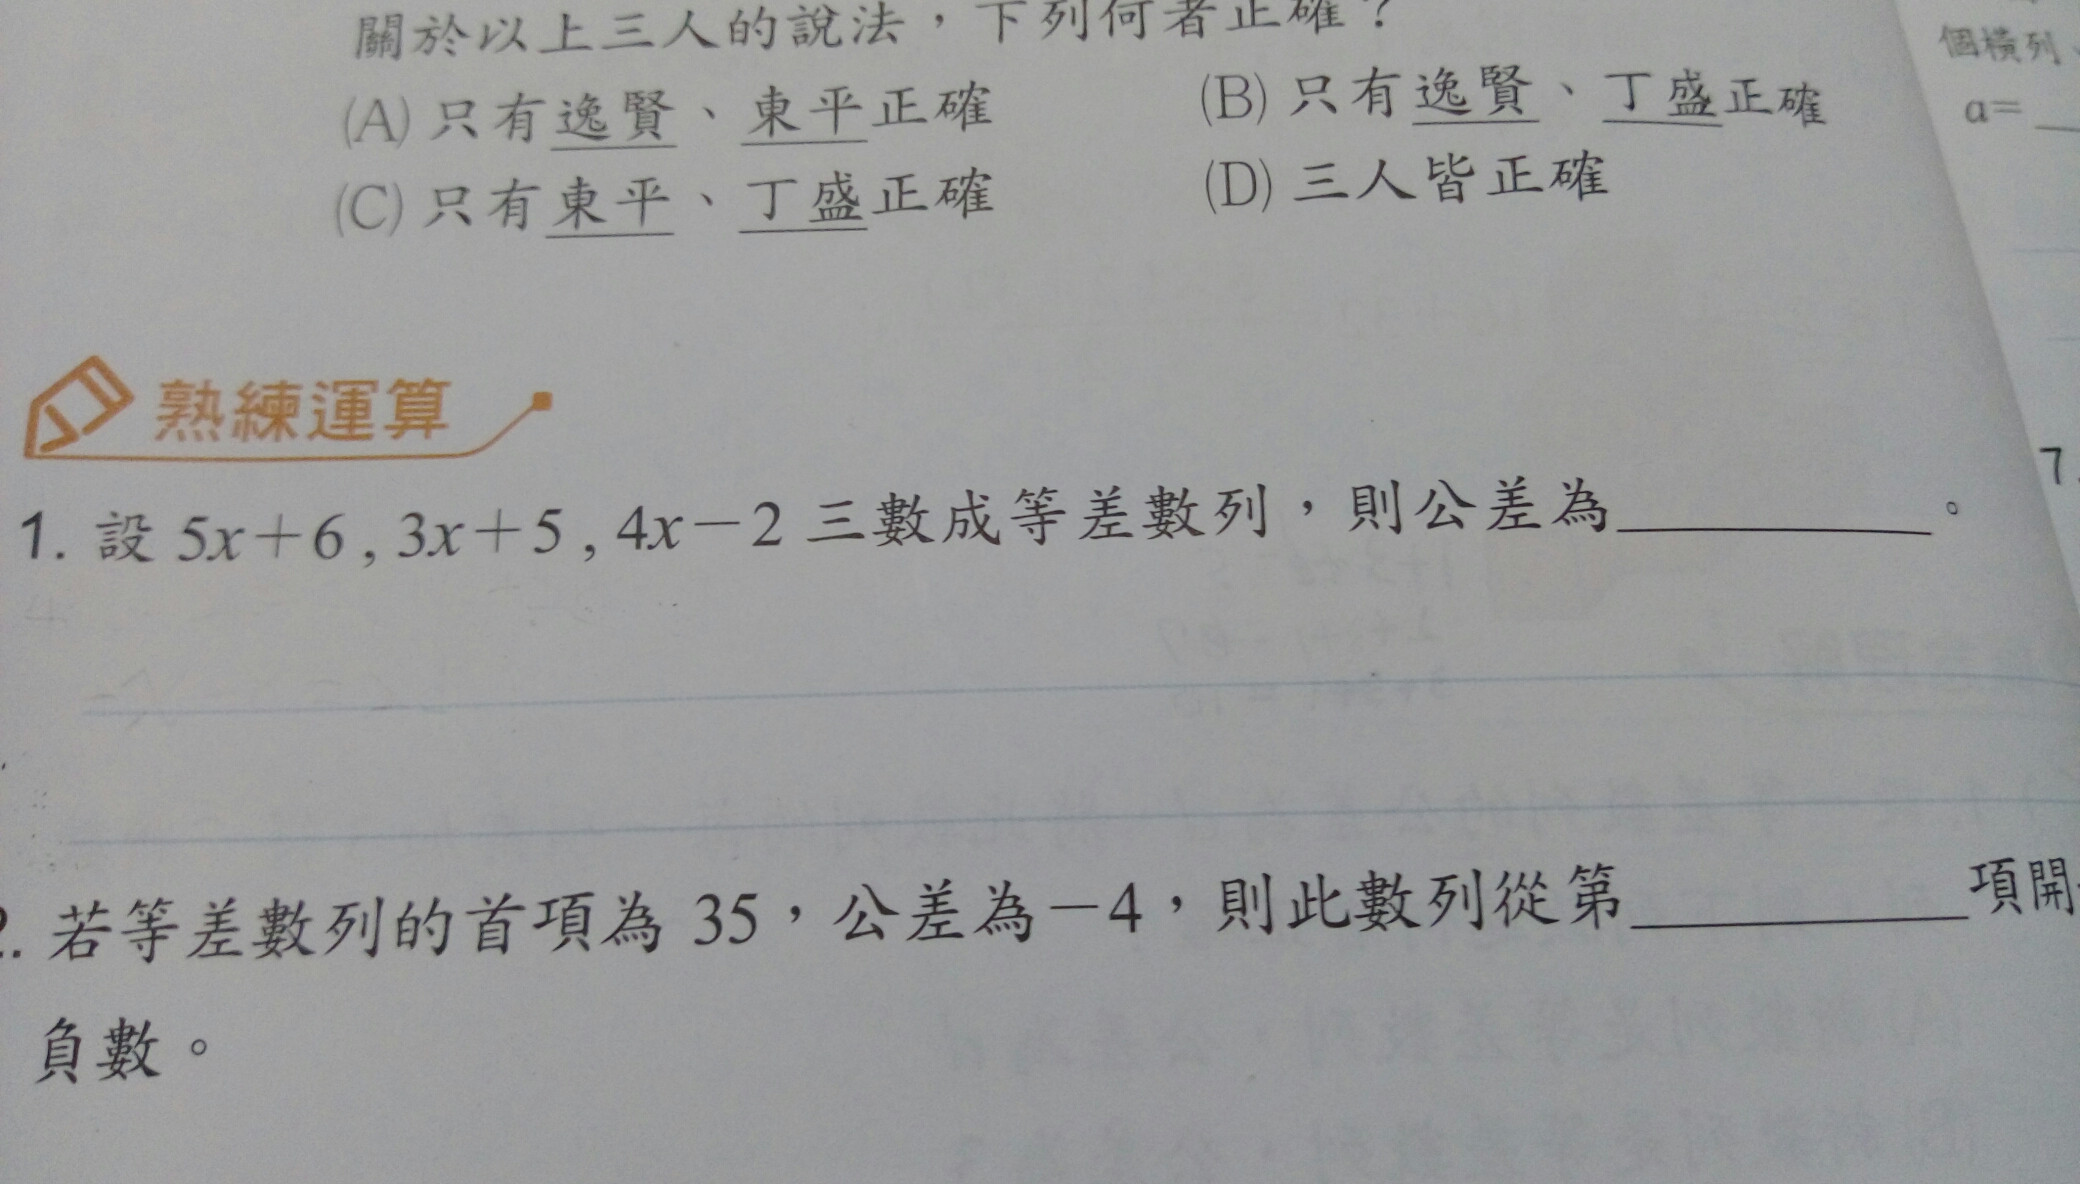 關於以上三人的說法，下列何者正確？
(A) 只有逸賢、東平正確
(B) 只有逸賢、丁盛正確
(C) 只有東平、丁盛正確
(D) 三人皆正確
熟練運算
1. 設 5x＋6 , 3x＋5 , 4x－2 三數成等差數列，則公差為________。
2. 若等差數列的首項為 35，公差為－4，則此數列從第________項開
負數。
個橫列、
a=
7.